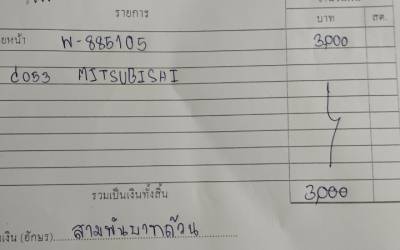 รายการ บาท สต.
ยหน้า W-885105 3,000
d053 MITSUBISHI
รวมเป็นเงินทั้งสิ้น 3,000
เงิน (อักษร) สามพันบาทถ้วน